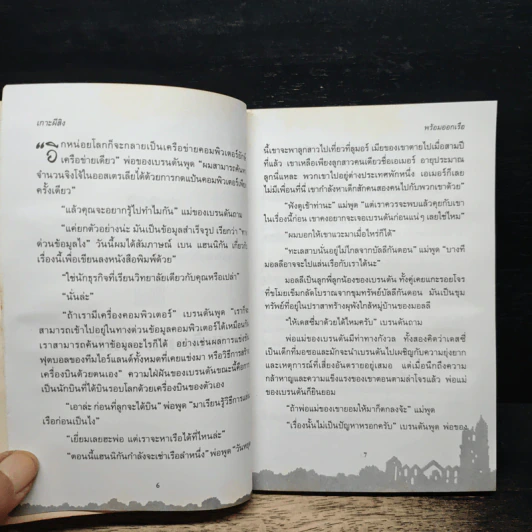 เกาะผีสิง
"อีกหน่อยโลกก็จะกลายเป็นเครือข่ายคอมพิวเตอร์ยักษ์
เครือข่ายเดียว" พ่อของเบรนดันพูด "ผมสามารถค้นหา
จำนวนจิงโจ้ในออสเตรเลียได้ด้วยการกดแป้นคอมพิวเตอร์เพียง
ครั้งเดียว"
"แล้วคุณจะอยากรู้ไปทำไมกัน" แม่ของเบรนดันถาม
"แค่ยกตัวอย่างน่ะ มันเป็นข้อมูลสำเร็จรูป เรียกว่า
ด่วนข้อมูลไง" วันนี้ผมได้สัมภาษณ์ เบน แฮนนิกัน เกี่ยวกับ
เรื่องนี้เพื่อเขียนลงหนังสือพิมพ์ด้วย"
"ใช่นักธุรกิจที่เรียนวิทยาลัยเดียวกับคุณหรือเปล่า"
"นั่นล่ะ"
"ถ้าเรามีเครื่องคอมพิวเตอร์" เบรนดันพูด "เราก็จะ
สามารถเข้าไปอยู่ในทางด่วนข้อมูลคอมพิวเตอร์ได้เหมือนกัน
เราสามารถค้นหาข้อมูลอะไรก็ได้ อย่างเช่นผลการแข่งขัน
ฟุตบอลของทีมไอร์แลนด์ทั้งหมดที่เคยแข่งมา หรือวิธีการสร้าง
เครื่องบินด้วยตนเอง" ความใฝ่ฝันของเบรนดันขณะนี้คือการ
เป็นนักบินที่ได้บินรอบโลกด้วยเครื่องบินของตัวเอง
"เอาล่ะ ก่อนที่ลูกจะได้บิน" พ่อพูด "มาเรียนรู้วิธีการแล่นเรือ
ก่อนเป็นไง"
"เยี่ยมเลยฮะพ่อ แต่เราจะหาเรือได้ที่ไหนล่ะ"
"ตอนนี้แฮนนิกันกำลังจะเช่าเรือลำหนึ่ง" พ่อพูด "วันหยุด
6
พร้อมออกเรือ
นี้เขาจะพาลูกสาวไปเที่ยวที่ลูมอร์ เมียของเขาตายไปเมื่อสามปี
ที่แล้ว เขาเหลือเพียงลูกสาวคนเดียวชื่อเอเมอร์ อายุประมาณ
ลูกนี่แหละ พวกเขาไปอยู่ต่างประเทศพักหนึ่ง เอเมอร์ก็เลย
ไม่มีเพื่อนที่นี่ เขากำลังหาเด็กสักคนสองคนไปกับพวกเขาด้วย"
"ฟังดูเข้าท่านะ" แม่พูด "แต่เราควรจะพบและพูดคุยกับเขา
ในเรื่องนี้ก่อน เขาคงอยากจะเจอเบรนดันก่อนแน่ๆ เลยใช่ไหม"
"ผมบอกให้เขาแวะมาเมื่อไหร่ก็ได้"
"ทะเลสาบนั่นอยู่ไม่ไกลจากบัลลีกันตอน" แม่พูด "บางที
มอลลีอาจจะไปแล่นเรือกับเราได้นะ"
มอลลีเป็นลูกพี่ลูกน้องของเบรนดัน ทั้งคู่เคยแกะรอยโจร
ที่ขโมยเข็มกลัดโบราณจากขุมทรัพย์บัลลีกันตอน มันเป็นขุม
ทรัพย์ที่อยู่ในปราสาทร้างผุพังใกล้หมู่บ้านของมอลลี
"ให้เดซี่มาด้วยได้ไหมครับ" เบรนดันถาม
พ่อแม่ของเบรนดันมีท่าทางกังวล ทั้งสองคิดว่าเดซี่
เป็นเด็กที่มอซอและมักจะนำเบรนดันไปเผชิญกับความยุ่งยาก
และเหตุการณ์ที่เสี่ยงอันตรายอยู่เสมอ แต่เมื่อนึกถึงความ
กล้าหาญและความแข็งแรงของเขาตอนตามล่าโจรแล้ว พ่อแม่
ของเบรนดันก็ยินยอม
"ถ้าพ่อแม่ของเขายอมให้มาก็ตกลงจ้ะ" แม่พูด
"เรื่องนั้นไม่เป็นปัญหาหรอกครับ" เบรนดันพูด พ่อของ
7